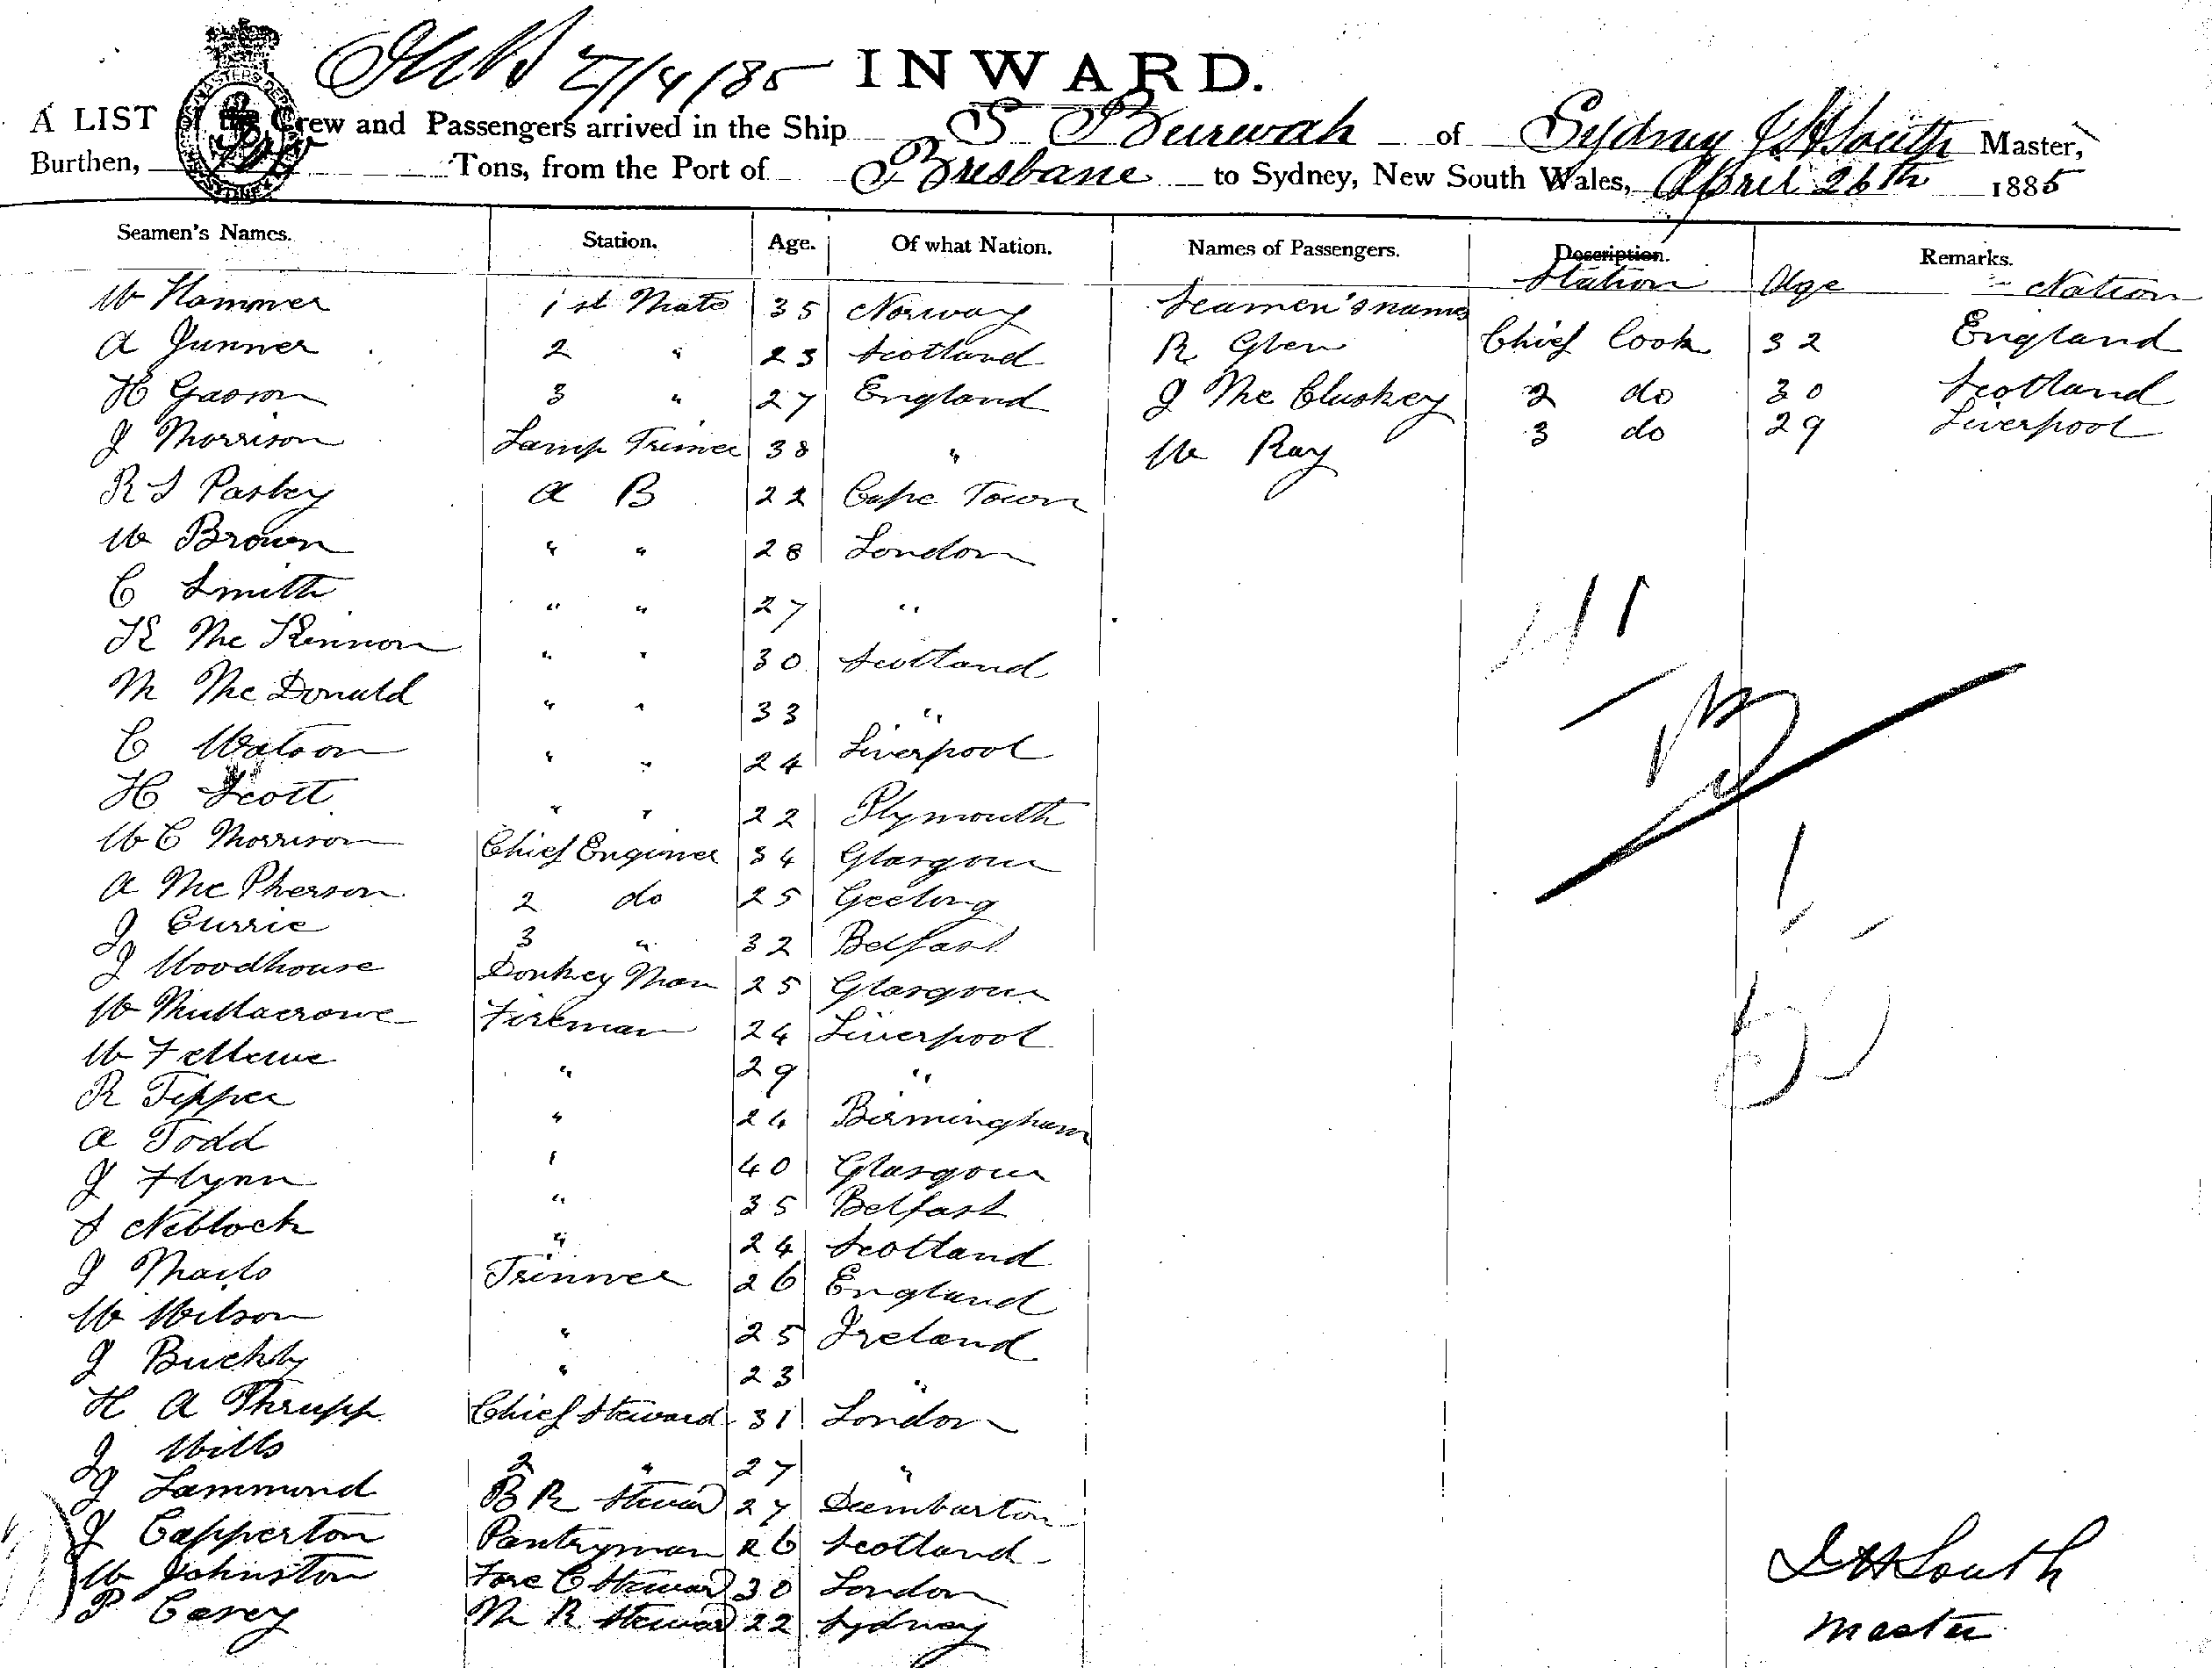 27/4/85 INWARD.
A LIST of the Crew and Passengers arrived in the Ship S Burwah of Sydney J H South Master,
Burthen, Tons, from the Port of Brisbane to Sydney, New South Wales, April 26th 1885
Seamen's Names. Station. Age. Of what Nation. Names of Passengers. Description. Remarks.
Station Age Nation
W Hammer 1st Mate 35 Norway Seamen's names
A Gunner 2 " 23 Scotland R Glen Chief Cook 32 England
H Gasson 3 " 27 England J McCluskey 2 do 30 Scotland
J Morrison Lamp Trimer 38 " W Ray 3 do 29 Liverpool
R S Pasbey A B 22 Cape Town
W Brown " " 28 London
C Smith " " 27 "
K McKennon " " 30 Scotland
M McDonald " " 33 "
C Watson " " 24 Liverpool
H Scott " " 22 Plymouth
W C Morrison Chief Engineer 34 Glasgow
A McPherson 2 do 25 Geelong
J Currie 3 " 32 Belfast
J Woodhouse Donkey Man 25 Glasgow
W Fireman 24 Liverpool
W " 29 "
R Tipper " 24 Birmingham
A Todd " 40 Glasgow
J Flynn " 35 Belfast
S Neblock " 24 Scotland
J Trimmer 26 England
W Wilson " 25 Ireland
J " 23 "
H A Thrupp Chief Steward 31 London
J Wills 2 " 27 "
J Lammond B R Steward 27 Dumbarton
J Capperton Pantryman 26 Scotland
W Johnston Fore C Steward 30 London
P Carey M R Steward 22 Sydney
J H South
Master